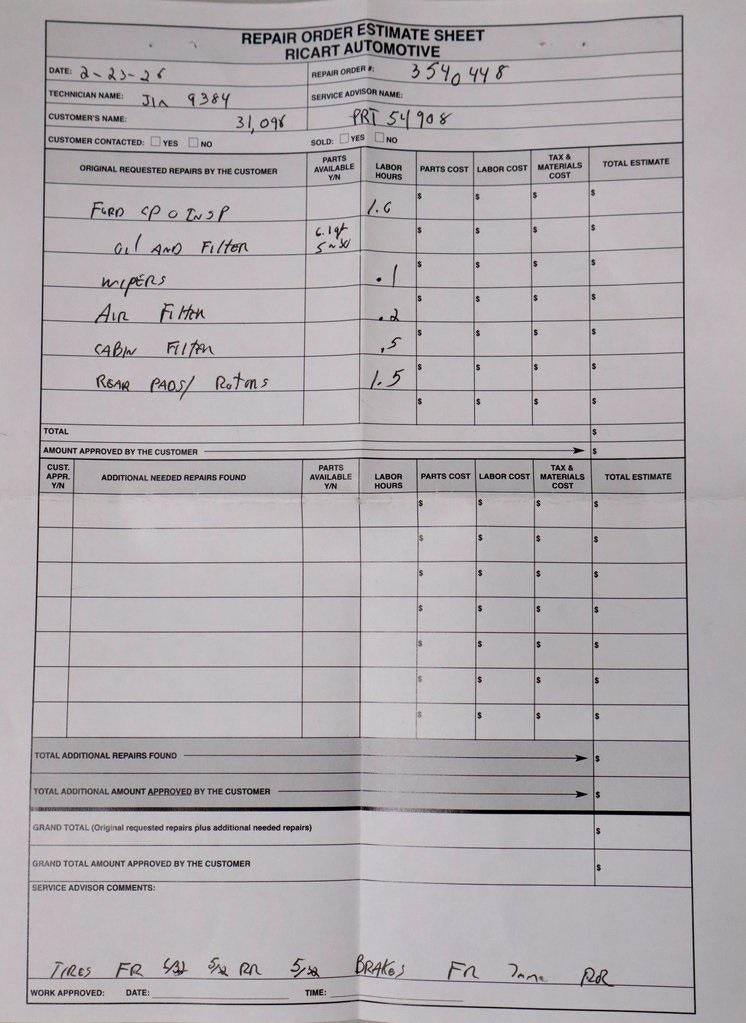 REPAIR ORDER ESTIMATE SHEET
RICART AUTOMOTIVE
DATE: 2-23-26 REPAIR ORDER #: 3540448
TECHNICIAN NAME: 9384 SERVICE ADVISOR NAME:
CUSTOMER'S NAME: 31,098 PRT 54908
CUSTOMER CONTACTED: YES NO SOLD: YES NO
ORIGINAL REQUESTED REPAIRS BY THE CUSTOMER PARTS AVAILABLE Y/N LABOR HOURS PARTS COST LABOR COST TAX & MATERIALS COST TOTAL ESTIMATE
FORD CPO INSP 1.6 $ $ $ $
OIL AND FILTER 6.1qt $ $ $ $
WIPERS .1 $ $ $ $
AIR FILTER .2 $ $ $ $
CABIN FILTER .5 $ $ $ $
REAR PADS/ ROTORS 1.5 $ $ $ $
$ $ $ $
TOTAL $
AMOUNT APPROVED BY THE CUSTOMER $
CUST. APPR. Y/N ADDITIONAL NEEDED REPAIRS FOUND PARTS AVAILABLE Y/N LABOR HOURS PARTS COST LABOR COST TAX & MATERIALS COST TOTAL ESTIMATE
$ $ $ $
$ $ $ $
$ $ $ $
$ $ $ $
$ $ $ $
$ $ $ $
$ $ $ $
TOTAL ADDITIONAL REPAIRS FOUND $
TOTAL ADDITIONAL AMOUNT APPROVED BY THE CUSTOMER $
GRAND TOTAL (Original requested repairs plus additional needed repairs) $
GRAND TOTAL AMOUNT APPROVED BY THE CUSTOMER $
SERVICE ADVISOR COMMENTS:
TIRES FR 5/32 RR 5/32 BRAKES FR 7mm
WORK APPROVED: DATE: TIME: